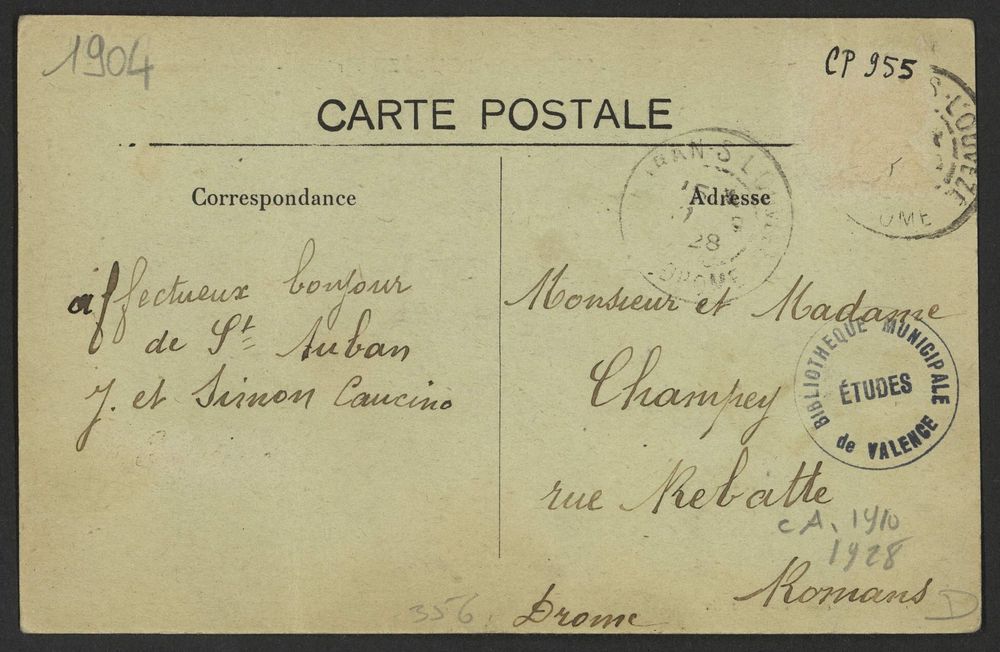 1904
CP 955
CARTE POSTALE
Correspondance
Adresse
affectueux bonjour
de St Auban
J. et Simon Caucino
Monsieur et Madame
Champey
rue Rebatte
Romans
Drome
BIBLIOTHEQUE MUNICIPALE
ÉTUDES
de VALENCE
28
DROME
S. L'OUVEZE
CA. 1910
1928
356
D